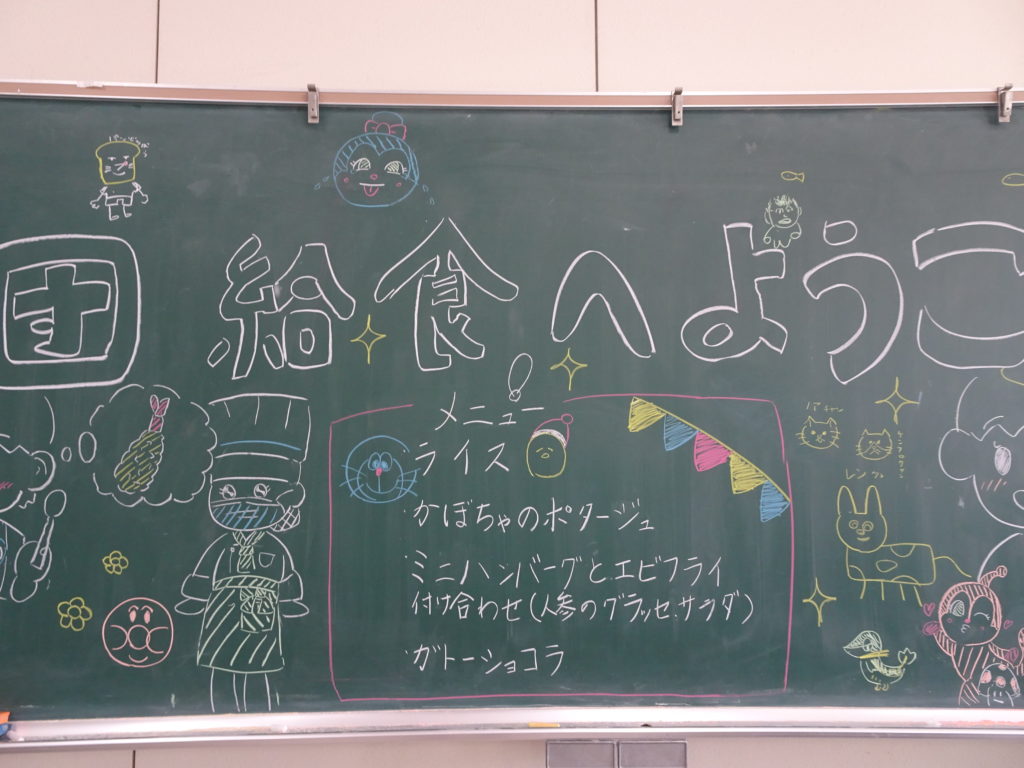 団 給食へようこ
メニュー
ライス
・かぼちゃのポタージュ
・ミニハンバーグとエビフライ
付け合わせ(人参のグラッセ.サラダ)
・ガトーショコラ